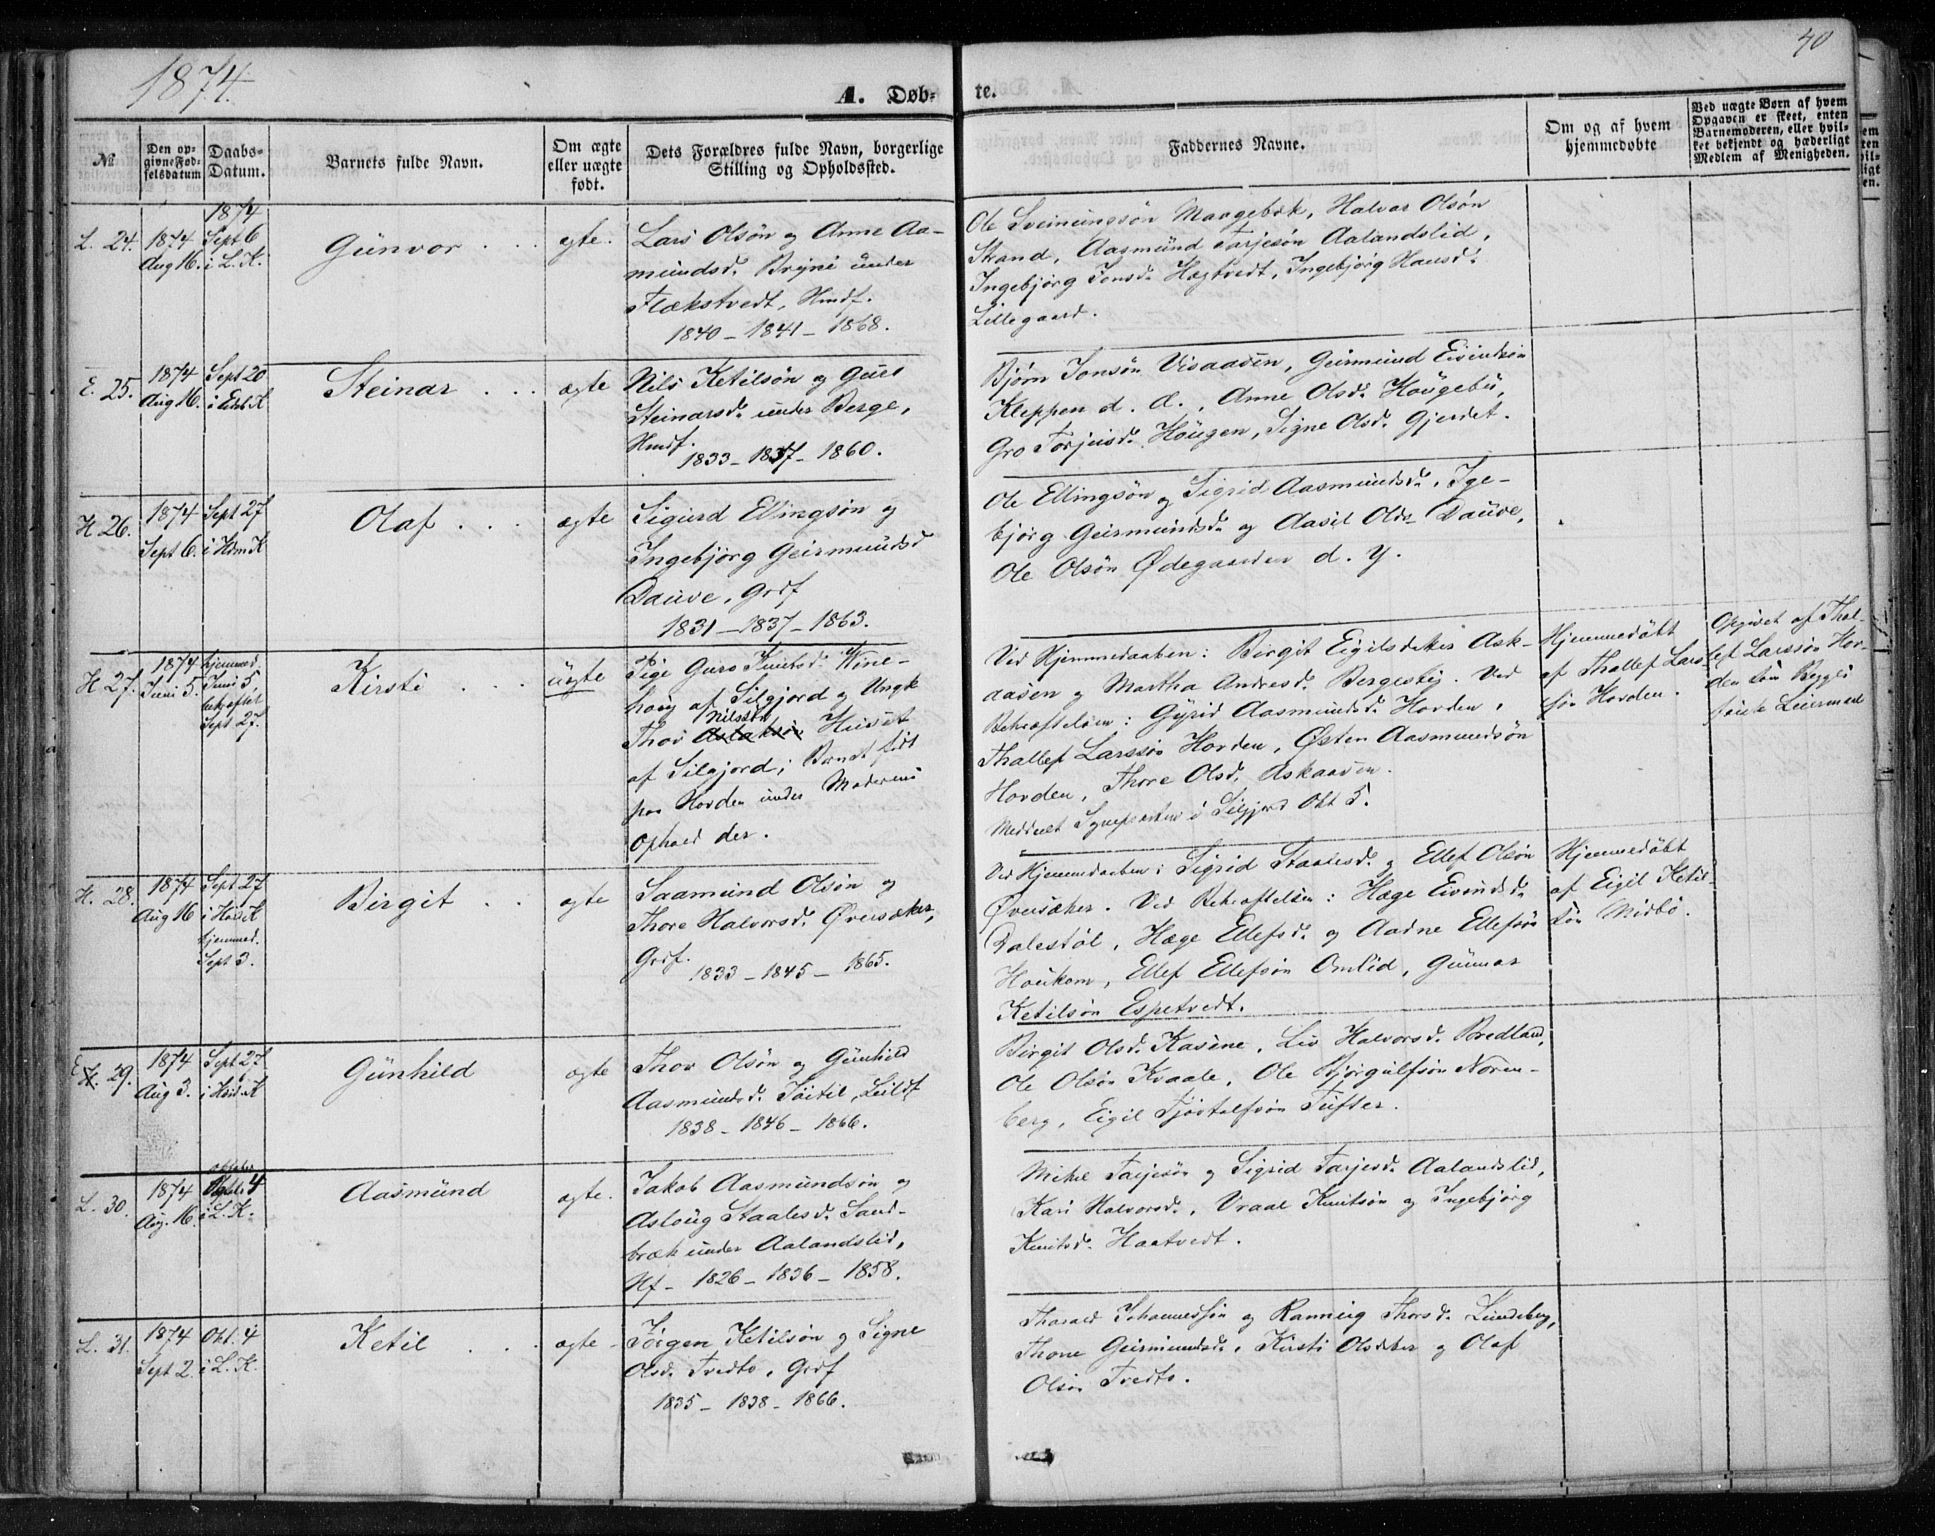 1874.
A. Døb-
te.
40
№
Den op-
givne Fød-
selsdatum
Daabs-
Datum.
Barnets fulde Navn.
Om ægte
eller uægte
født.
Dets Forældres fulde Navn, borgerlige
Stilling og Opholdssted.
Faddernes Navne.
Om og af hvem
hjemmedøbte
Ved uægte Børn af hvem
Opgaven er skeet, enten
Barnemoderen, eller hvil-
ket bekjendt og hæderligt
Medlem af Menigheden.
L. 24.
1874
Aug 16.
1874
Sept 6
i L. K.
Gunvor
ægte.
Lars Olsøn og Anne Aa-
mundsd. Bryni under
Flækstvedt, Hmdf.
1840 - 1841 - 1868.
Ole Sveinungsøn Maagebæk, Halvar Olsøn
Strand, Aasmund Tarjesøn Aalandslid,
Ingebjørg Jonsd. Hægtvedt, Ingebjørg Hansd.
Lillegaard.
E. 25.
1874
Aug 16.
Sept 20
i Eidsb. K
Steinar
ægte
Nils Ketilsøn og
Steinarsd. under Berge,
Hmdf.
1833 - 1837 - 1860.
Bjørn Jonsøn Visaasen, Geirmund Eivindsøn
Kleppen d. æ., Anne Olsd. Hougebu,
Gro Torjusd. Hougen, Signe Olsd. Gjerdet.
H 26.
1874
Sept 6.
Sept 27
i Hdm K
Olaf
ægte
Sigurd Ellingsøn og
Ingebjørg Geirmundsd
Dauve, Grdf
1831 - 1837 - 1863.
Ole Ellingsøn og Sigrid Aasmundsd., Ige-
bjørg Geirmundsd. og Aasil Olsd. Dauve,
Ole Olsøn Ødegaarden d. y.
H 27.
1874
Juni 5.
hjemmed.
Juni 5
bekræftet
Sept 27.
Kirsti
uægte
Pige Guro Knutsd. Vine-
houg af Silgjord og Ungk
Thor Aslaksøn Nilssøn Huset
af Silgjord; Barnet født
paa Hovden under Moderens
Ophold der.
Ved Hjemmedaaben: Birgit Eigilsdatter Ask-
aasen og Martha Andresd. Bergesbij. Ved
Bekræftelsen: Gyrid Aasmundsd. Hovden,
Thallef Larssøn Hovden, Østen Aasmundsøn
Hovden, Thore Olsd. Askaasen.
Meddeelt Sognepræsten i Silgjord Okt 5.
Hjemmedøbt
af Thallef Lars-
søn Hovden.
Opgivet af Thal-
lef Larssøn Hov-
den
H. 28.
1874
Aug 16
Sept 27
i Hvid. K
hjemmed.
Sept 3.
Birgit
ægte
Saamund Olsøn og
Thore Halvorsd. Øveraaker,
Grdf.
1833 - 1845 - 1865.
Ved Hjemmedaaben: Sigrid Staalesd. og Ellef Olsøn
Øveraaker. Ved Bekræftelsen: Hæge Eivindsd.
Dalestøl, Hæge Ellefsd. og Aadne Ellefsøn
Houkom, Ellef Ellefsøn Omlid, Gunnar
Ketilsøn Espetvedt.
Hjemmedøbt
af Eigil Ketil-
søn Midbø.
E
H. 29.
1874
Aug 3.
Sept 27
i Hvid. K
Gunhild
ægte
Thor Olsøn og Gunhild
Aasmundsd. Tøitil, Leildf
1838 - 1846 - 1866.
Birgit Olsd. Kasene, Liv Halvorsd. Bredland,
Ole Olsøn Kvaale, Ole Bjørgulfsøn Noren-
berg, Eigil Tjøstolfsøn Tufter.
L. 30.
1874
Aug. 16.
oktober
4
i L. K.
Aasmund
ægte.
Jakob Aasmundsøn og
Asloug Staalesd. Sand-
bræk under Aalandslid,
Hf - 1826 - 1836 - 1858.
Mikel Tarjesøn og Sigrid Tarjesd. Aalandslid,
Kari Halvorsd., Vraal Knutsøn og Ingebjørg
Knutsd. Haatvedt.
L. 31.
1874
Sept 2.
Okt. 4
i L. K.
Ketil
ægte
Jørgen Ketilsøn og Signe
Olsd. Tvedto, Grdf
1835 - 1838 - 1866.
Tharald Johannessøn og Ranneig Thorsd. Lundeberg,
Thone Geirmundsd., Kirsti Olsdatter og Olaf
Olsøn Tvedto.